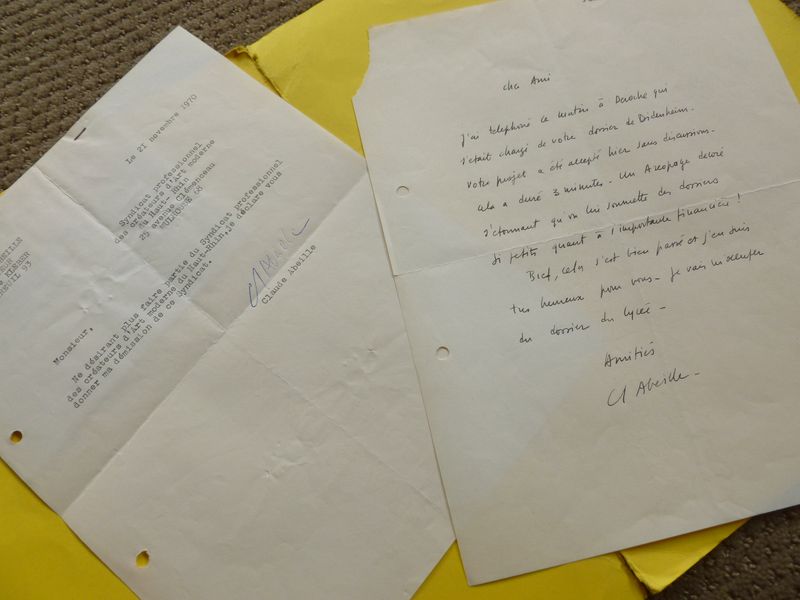 Le 2I Novembre 1970
Syndicat professionnel
des créateurs d'Art moderne
du Haut-Rhin
25 avenue Clémenceau
MULHOUSE 68
ABEILLE
KLEBER
MONTREUIL 93
Monsieur,
Ne désirant plus faire partie du Syndicat professionnel
des créateurs d'Art moderne du Haut-Rhin, je déclare vous
donner ma démission de ce Syndicat.
Cl Abeille
Claude Abeille
Cher Ami
J'ai téléphoné ce matin à Deroche qui
s'était chargé de votre dossier de Didenheim.
Votre projet a été accepté hier sans discussions.
Cela a duré 3 minutes. Un Aréopage décoré
s'étonnant qu'on lui soumette des dossiers
si petits quant à l'importance financière !
Bref, cela s'est bien passé et j'en suis
très heureux pour vous. Je vais m'occuper
du dossier du lycée -
Amitiés
Cl Abeille -